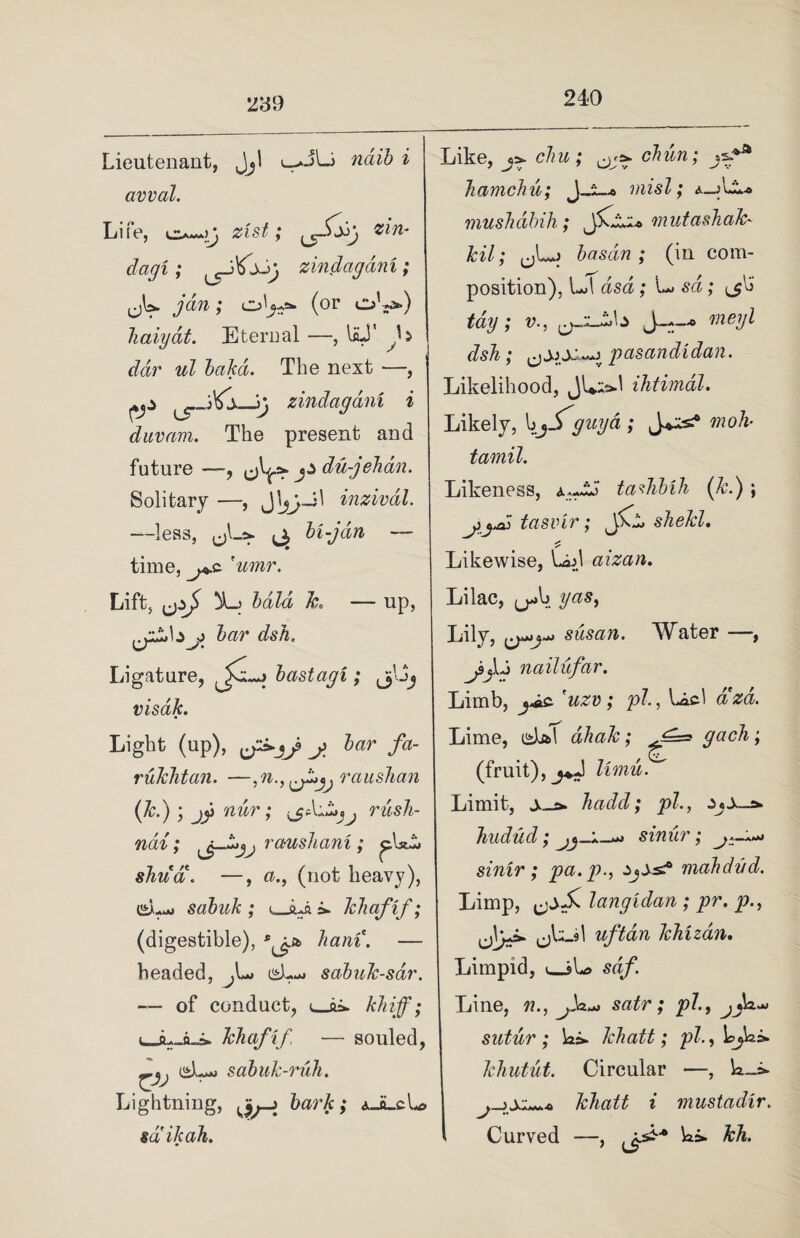 239
Lieutenant, نائب اوّل náib i
avval.
Life, زيست zíst; زندگي zin-
dagí; زندگاني zindagání;
جان ján; حيوة (or حيات)
haiyát. Eternal —, دار البقا
dár ul baká. The next —,
زندگاني دوم zindagání i
duvam. The present and
future —, دو جهان dú-jehán.
Solitary —, انزوال inzivál.
—less, بي جان bí-ján —
time, عمر 'umr.
Lift, بالا كردن bálá k. — up,
بر داشتن bar dsh.
Ligature, بستگي bastagí; وثاق
visák.
Light (up), بر فروختن bar fa-
rúkhtan. —, n., روشن raushan
(k.); نور núr; روشنائي rúsh-
náí; روشني raushaní; شعاع
shu'á'. —, a., (not heavy),
سبك sabuk; خفيف khafíf;
(digestible), هنيء haní'. —
headed, سبك سار sabuk-sár.
— of conduct, خفّ khiff;
خفيف khafíf. — souled,
سبك روح sabuk-rúh.
Lightning, برق bark; صاعقه
sá'ikah.
240
Like, چو chu; چون chún; همچو
hamchú; مثل misl; مشابه
mushábih; متشكّل mutashak-
kil; بسان basán; (in com-
position), آسا ásá; سا sá; تاي
táy; v., ميل داشتن meyl
dsh; پسنديدن pasandídan.
Likelihood, احتمال ihtimál.
Likely, گويا guyá; محتمل moh-
tamil.
Likeness, تشبيه tashbíh (k.);
تصوير tasvír; شكل shekl.
Likewise, ايضا aizan.
Lilac, ياس yas,
Lily, سوسن súsan. Water —,
نيلوفر nailúfar.
Limb, عضو 'uzv; pl., اعضا a'zá.
Lime, آهك áhak; گچ gach;
(fruit), ليمو límú.
Limit, حد hadd; pl., حدود
hudúd; سنور sinúr; سنير
sinír; pa. p., محدود mahdúd.
Limp, لنگيدن langídan; pr. p.,
افتان خيزان uftán khízán.
Limpid, صاف sáf.
Line, n., سطر satr; pl., سطور
sutúr; خط khatt; pl., خطوط
khutút. Circular —, خط
مستدير khatt i mustadír.
Curved —, خط منحني kh.